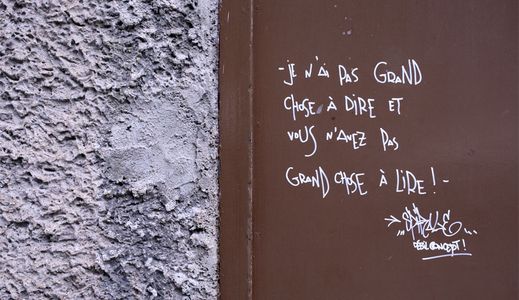 -JE N'AI PAS GRAND
CHOSE À DIRE ET
VOUS N'AVEZ PAS
GRAND CHOSE À LIRE ! -